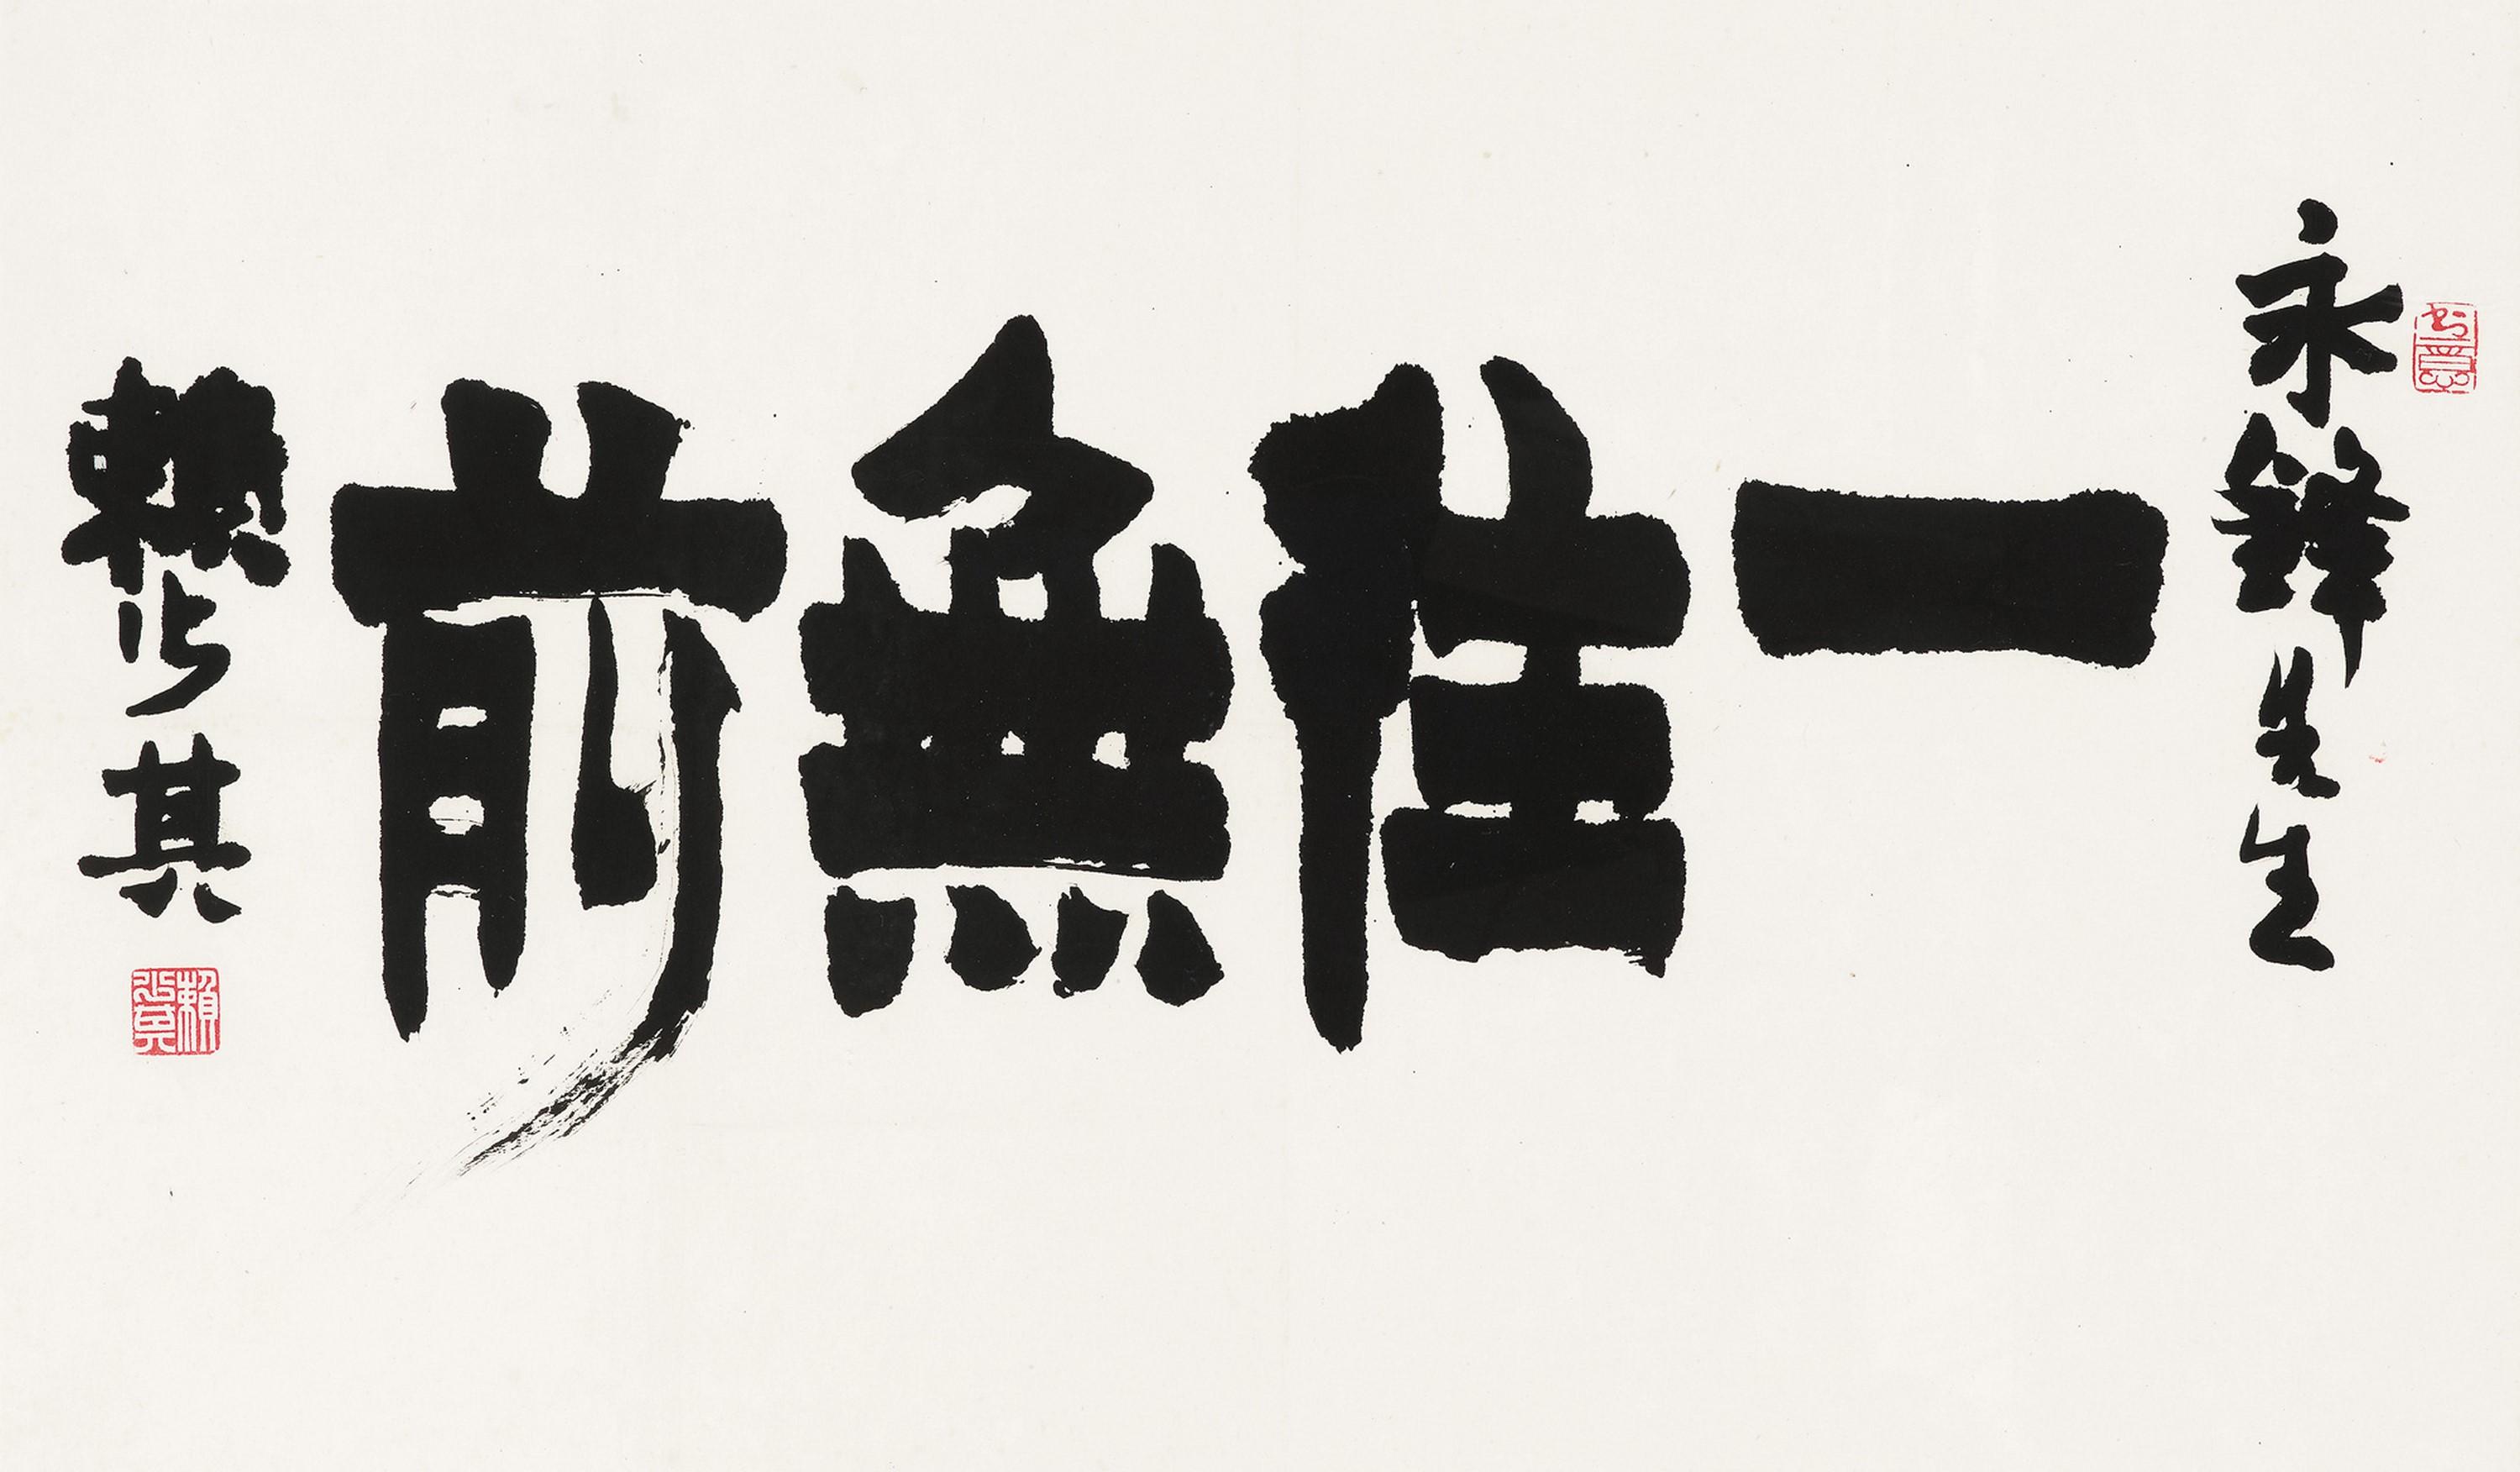 永鋒先生
一往無前
賴少其
賴少其